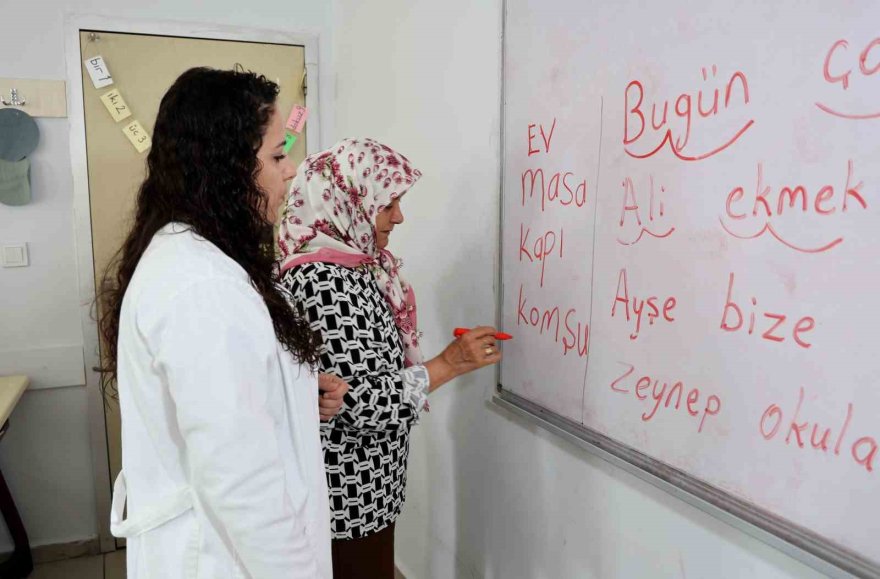 bir 1
iki 2
üç 3
EV
masa
Kapı
Komşu
Bugün
Ali ekmek
Ayşe bize
Zeynep okula